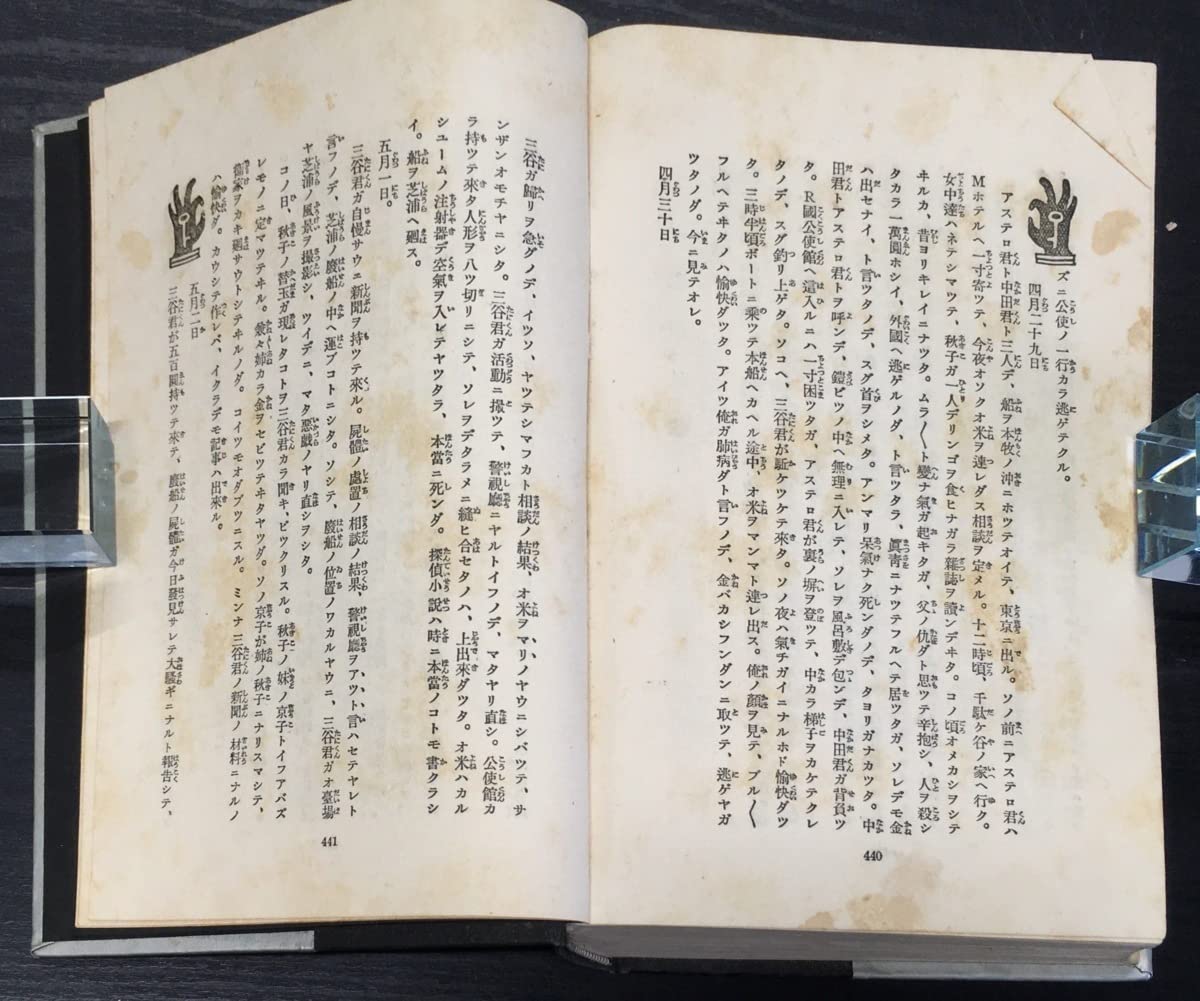 ズニ公使ノ一行カラ逃ゲテクル。
四月二十九日
アステロ君ト中田君ト三人デ、船ヲ本牧ノ沖ニホツテオイテ、東京ニ出ル。ソノ前ニアステロ君ハ
Mホテルヘ一寸寄ツテ、今夜オソクオ米ヲ連レダス相談ヲ定メル。十二時頃、千駄ケ谷ノ家ヘ行ク。
女中達ハネテシマツテ、秋子ガ一人デリンゴヲ食ヒナガラ雜誌ヲ讀ンデキタ。コノ頃オメカシヲシテ
ヰルカ、昔ヨリキレイニナツタ。ムラ〳〵ト變ナ氣ガ起キタガ、父ノ仇ダト思ツテ辛抱シ、人ヲ殺シ
タカラ一萬圓ホシイ、外國ヘ逃ゲルノダ、ト言ツタラ、眞靑ニナツテフルヘテ居ツタガ、ソレデモ金
ハ出セナイ、ト言ツタノデ、スグ首ヲシメタ。アンマリ呆氣ナク死ンダノデ、タヨリガナカツタ。中
田君トアステロ君トヲ呼ンデ、鎧ビツノ中ヘ無理ニ入レテ、ソレヲ風呂敷デ包ンデ、中田君ガ背負ツ
タ。R國公使館ヘ這入ルニハ一寸困ツタガ、アステロ君が裏ノ塀ヲ登ツテ、中カラ梯子ヲカケテクレ
タノデ、スグ釣リ上ゲタ。ソコヘ、三谷君が駈ケツケテ來タ。ソノ夜ハ氣チガイニナルホド愉快ダツ
タ。三時半頃ボートニ乘ツテ本船ヘカヘル途中、オ米ヲマンマト連レ出ス。俺ノ顏ヲ見テ、ブル〳〵
フルヘテヰタノハ愉快ダツタ。アイツ俺ガ肺病ダト言フノデ、金バカシフンダンニ取ツテ、逃ゲヤガ
ツタノダ。今ニ見テオレ。
四月三十日
440
三谷ガ歸リヲ急グノデ、イツソ、ヤツテシマフカト相談ノ結果、オ米ヲマリノヤウニシバツテ、サ
ンザンオモチヤニシタ。三谷君ガ活動ニ撮ツテ、警視廳ニヤルトイフノデ、マタヤリ直シ。公使館カ
ラ持ツテ來タ人形ヲ八ツ切リニシテ、ソレヲデタラメニ縫ヒ合セタノハ、上出來ダツタ。オ米ハカル
シユームノ注射器デ空氣ヲ入レテヤツタラ、本當ニ死ンダ。探偵小說ハ時ニ本當ノコトモ書クラシ
イ。船ヲ芝浦ヘ廻ス。
五月一日。
三谷君ガ自慢サウニ新聞ヲ持ツテ來ル。屍體ノ處置ノ相談ノ結果、警視廳ヲアツト言ハセテヤレト
言フノデ、芝浦ノ廢船ノ中ヘ運ブコトニシタ。ソシテ、廢船ノ位置ノワカルヤウニ、三谷君ガオ臺場
ヤ芝浦ノ風景ヲ撮影シ、ツイデニ、マタ惡戲ノヤリ直シヲシタ。
コノ日、秋子ノ替玉ガ現レタコトヲ三谷君カラ聞キ、ビツクリスル。秋子ノ妹ノ京子トイフアバズ
レモノニ定マツテキル。散々姉カラ金ヲセビツテキタヤツダ。ソノ京子が姉ノ秋子ニナリスマシテ、
柳家ヲカキ廻サウトシテキルノダ。コイツモオダブツニスル。ミンナ三谷君ノ新聞ノ材料ニナルノ
ハ愉快ダ。カウシテ作レバ、イクラデモ記事ハ出來ル。
五月二日
三谷君が五百圓持ツテ來テ、廢船ノ屍體ガ今日發見サレテ大騷ギニナルト報吿シテ、
441